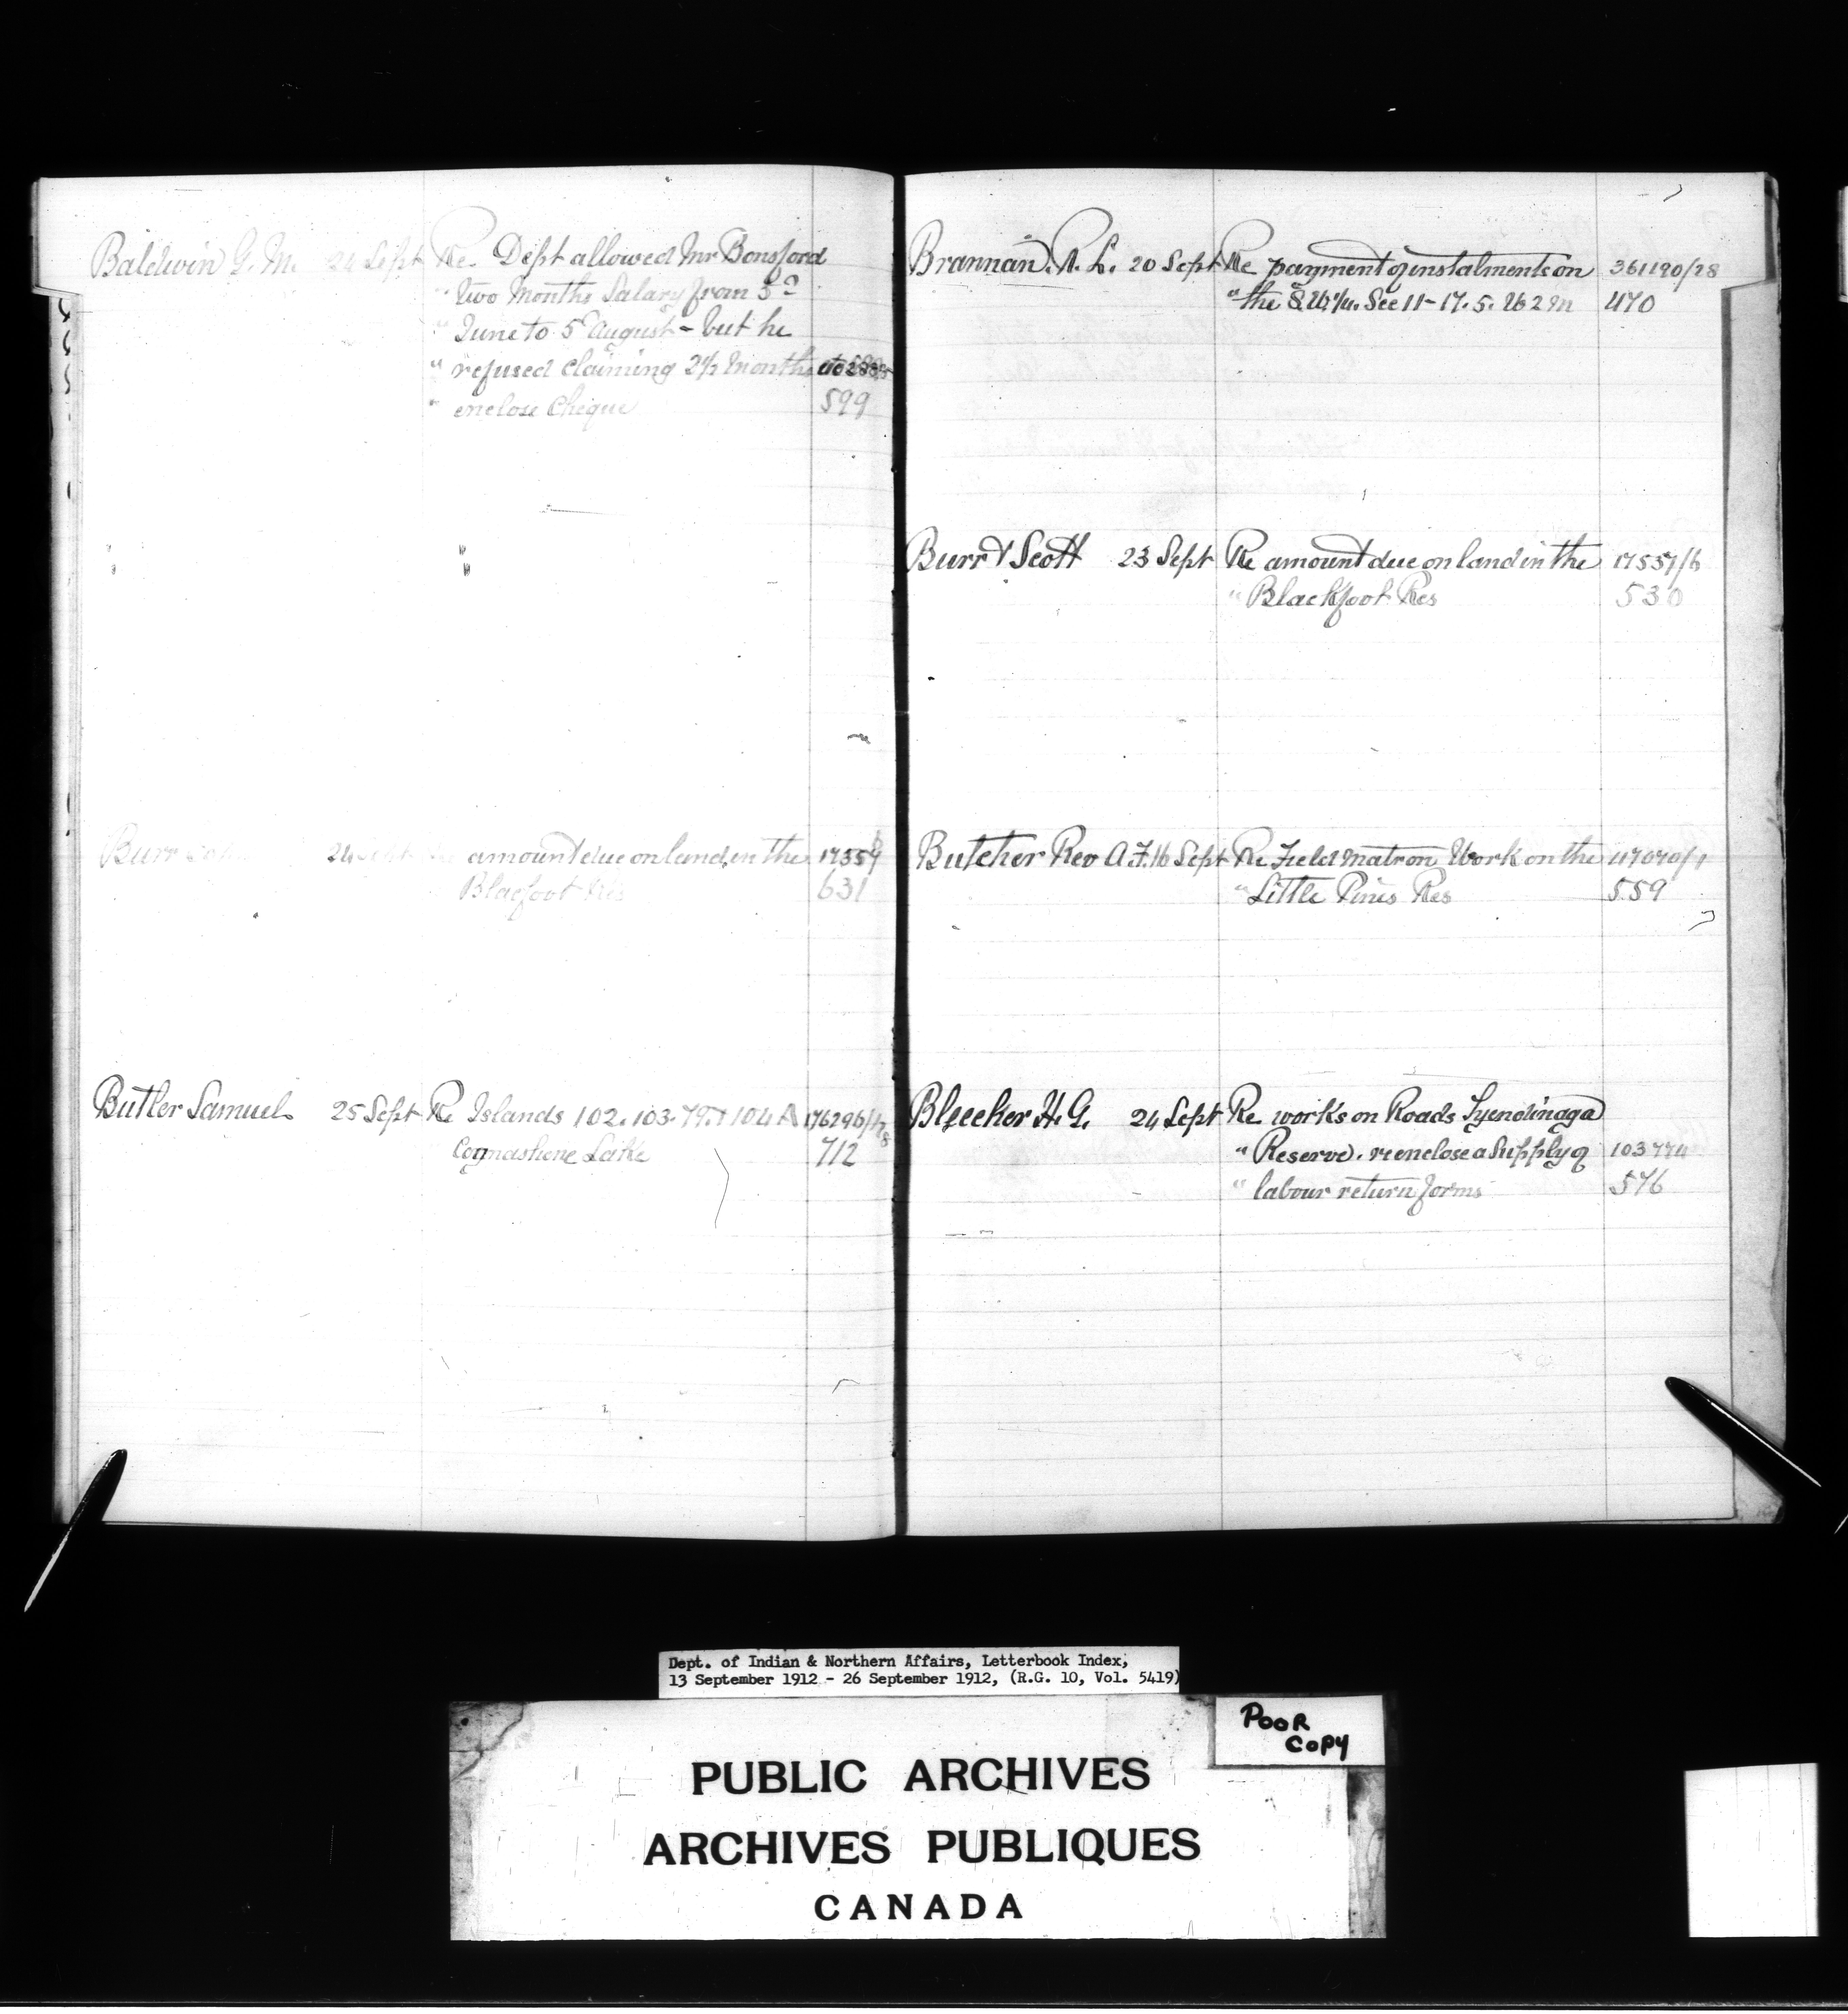 Baldwin G. M. 24 Sept Re. Dept allowed Mr Bonsford
" two months Salary from 5th
" June to 5th August - but he
" refused claiming 2 1/2 months
" enclose Cheque 599
Burr 24 Sept Re amount due on land in the 17557
Blacfoot Res 631
Butler Samuel 25 Sept Re Islands 102. 103. 79. & 104 A 176296/
Cognashene Lake 712
Brannan. R. L. 20 Sept Re payment of instalments on 361190/28
" the S.W. 1/4. Sec 11-17. 5. W 2 m 470
Burr & Scott 23 Sept Re amount due on land in the 17557/6
" Blackfoot Res 530
Butcher Rev A.F. 16 Sept Re Field matron Work on the 47070/1
" Little Pines Res 559
Bleecker H. G. 24 Sept Re works on Roads Tyendinaga
" Reserve. re enclose a Supply of 103774
" labour return forms 576
Dept. of Indian & Northern Affairs, Letterbook Index,
13 September 1912 - 26 September 1912, (R.G. 10, Vol. 5419)
POOR
COPY
PUBLIC ARCHIVES
ARCHIVES PUBLIQUES
CANADA